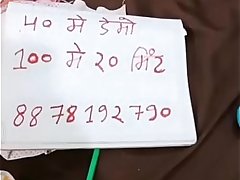 40 मे डेमो
100 मे 20 मिंट
8878192790